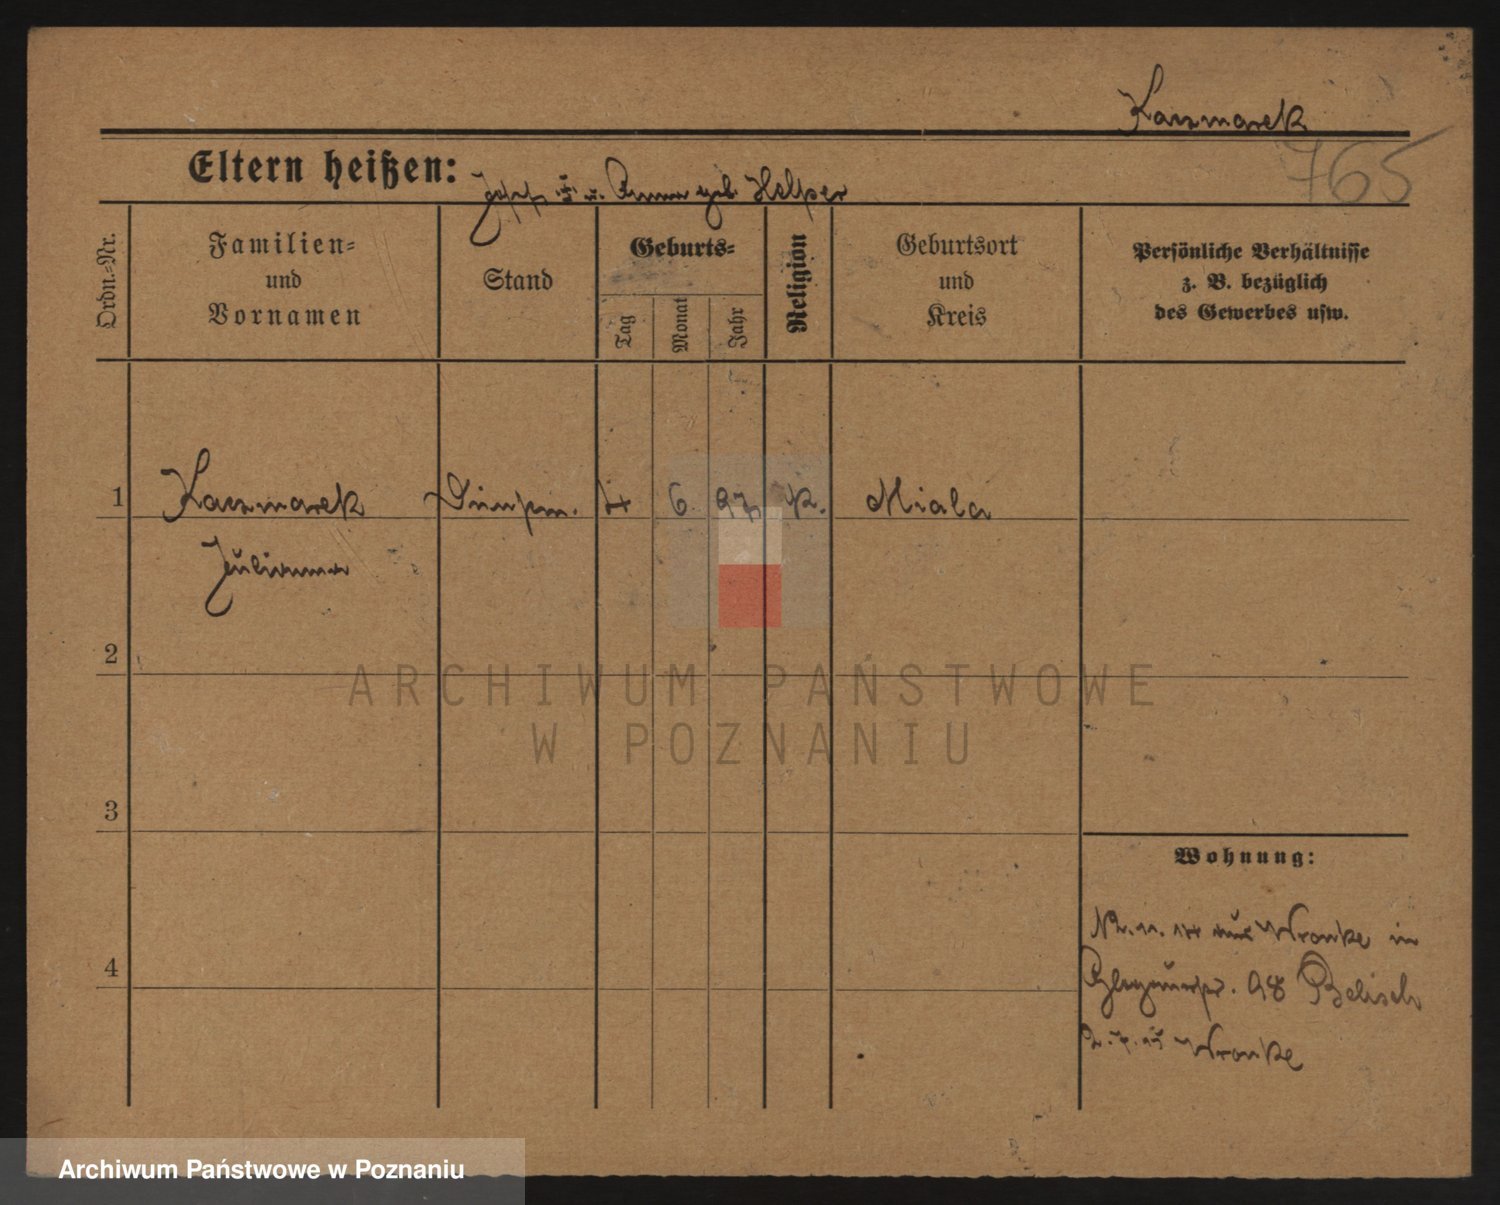 Kaczmarek
765
Eltern heißen: Josef u. Anna geb. Helper
Ordn.-Nr.
Familien-
und
Vornamen
Stand
Geburts-
Tag
Monat
Jahr
Religion
Geburtsort
und
Kreis
Persönliche Verhältnisse
z. B. bezüglich
des Gewerbes usw.
1 Kaczmarek 4 6 97 k. Miala
Julianna
2
ARCHIWUM PAŃSTWOWE
W POZNANIU
3
Wohnung:
Wronke in
98 Belisch
Wronke
4
Archiwum Państwowe w Poznaniu